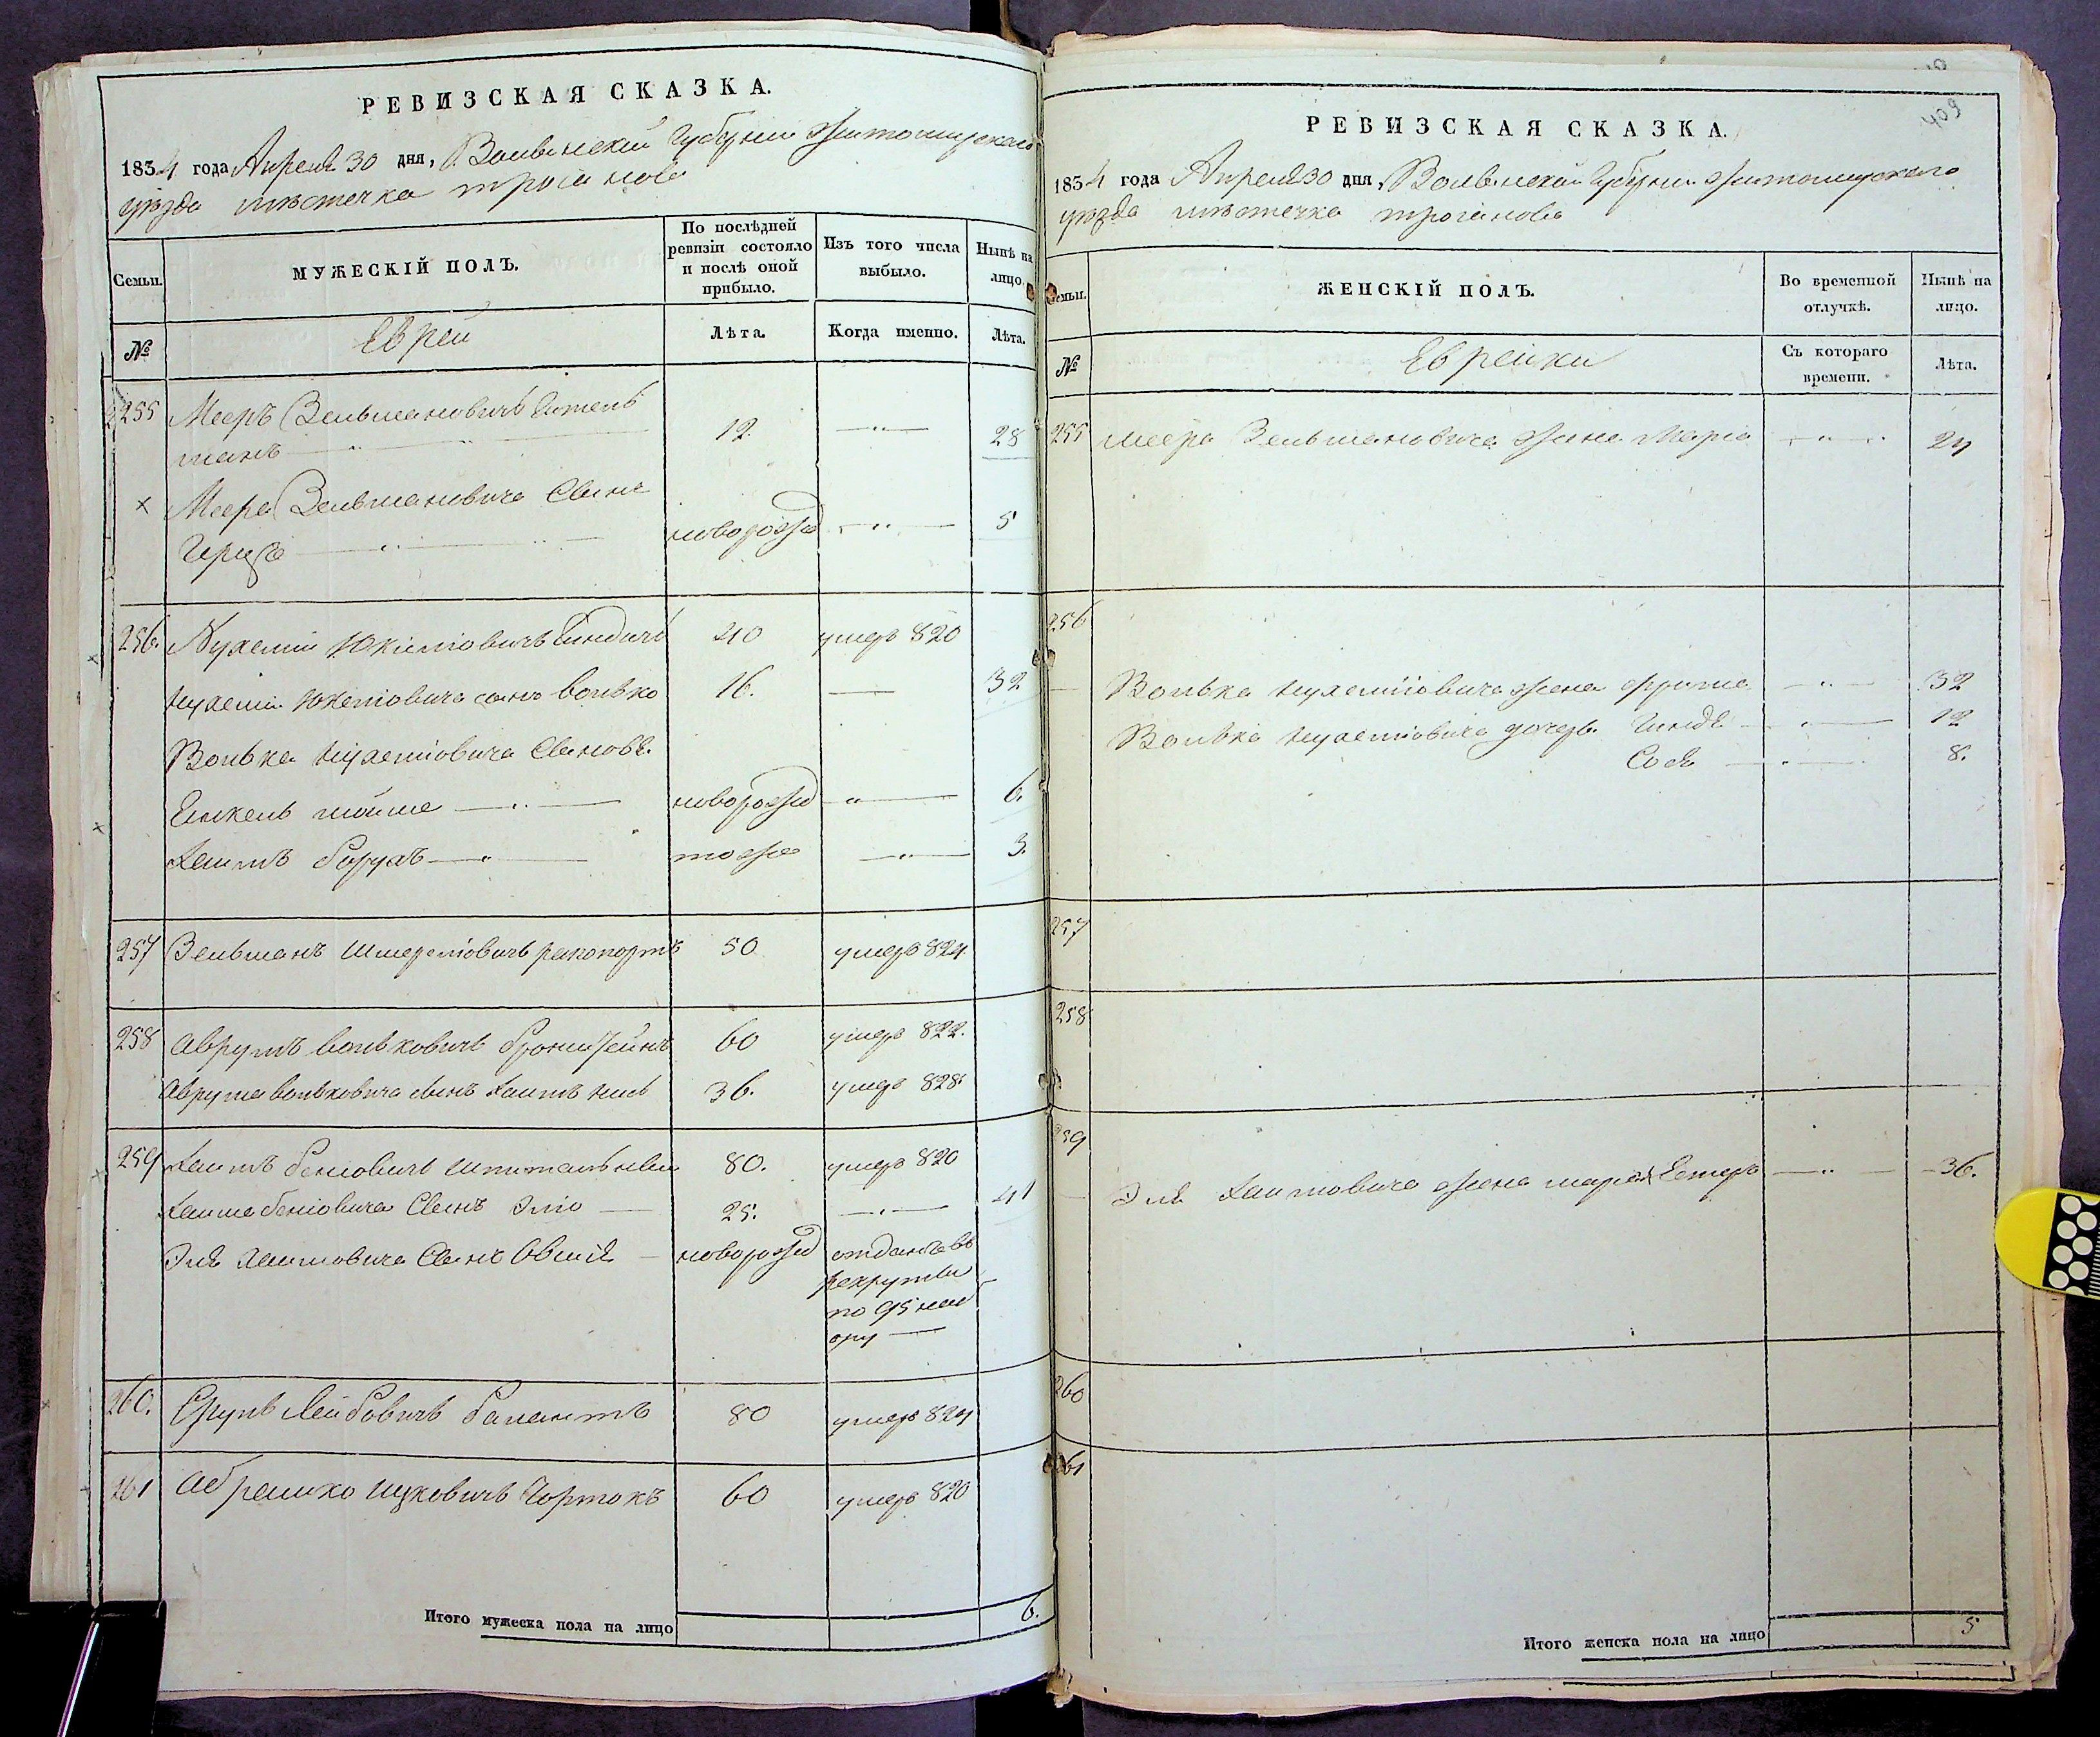 РЕВИЗСКАЯ СКАЗКА.
1834 года Апреля 30 дня, Волынской Губернии Житомирскаго
уѣзда мѣстечка Троянова
Семьи.
МУЖЕСКІЙ ПОЛЪ.
По послѣдней ревизіи состояло и послѣ оной прибыло.
Изъ того числа выбыло.
Нынѣ на лицо.
№
Евреи
Лѣта.
Когда именно.
Лѣта.
255 Мееръ Зельмановичъ
манъ 12. 28
× Меера Зельмановича Сынъ
Герцъ новорожд 5
256. Нухемія 40 умеръ 820
сынъ Волько 16. 32
Волька Нухеміовича Сыновья.
Янкель мойше новорожд 6.
Хаимъ борухъ тоже 3.
257 Зельманъ Шмереліовичъ рапопортъ 50 умеръ 824
258 Аврумъ вольковичъ 60 умеръ 822.
Аврума вольковича сынъ Хаимъ 36. умеръ 828
259 Хаимъ беніовичъ 80. умеръ 820
Хаима беніовича Сынъ Эліо 25. 41
Эля Хаимовича Сынъ Овшія новорожд отданъ въ
рекруты
по 95 наб
ору
260. Сруль Лейбовичъ Талантъ 80 умеръ 824
261 Абрамко Ицковичъ Чортокъ 60 умеръ 820
Итого мужеска пола на лицо 6.
РЕВИЗСКАЯ СКАЗКА.
1834 года Апреля 30 дня, Волынской Губернии Житомирскаго
уѣзда мѣстечка Троянова
Семьи.
ЖЕНСКІЙ ПОЛЪ.
Во временной отлучкѣ.
Нынѣ на лицо.
№
Еврейки
Съ котораго времени.
Лѣта.
255 Меера Зельмановича Жена Марія 24
256
Волька Нухеміовича жена фрума 32
Волька Нухеміовича дочерь Гинда 12
Сося 8.
257
258
259
Эля Хаимовича жена марія Естеръ 36.
260
261
Итого женска пола на лицо 5